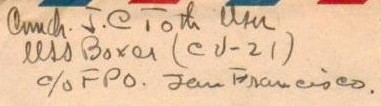 Cmdr. J.C Toth USN
USS Boxer (CV-21)
c/o FPO. San Francisco.